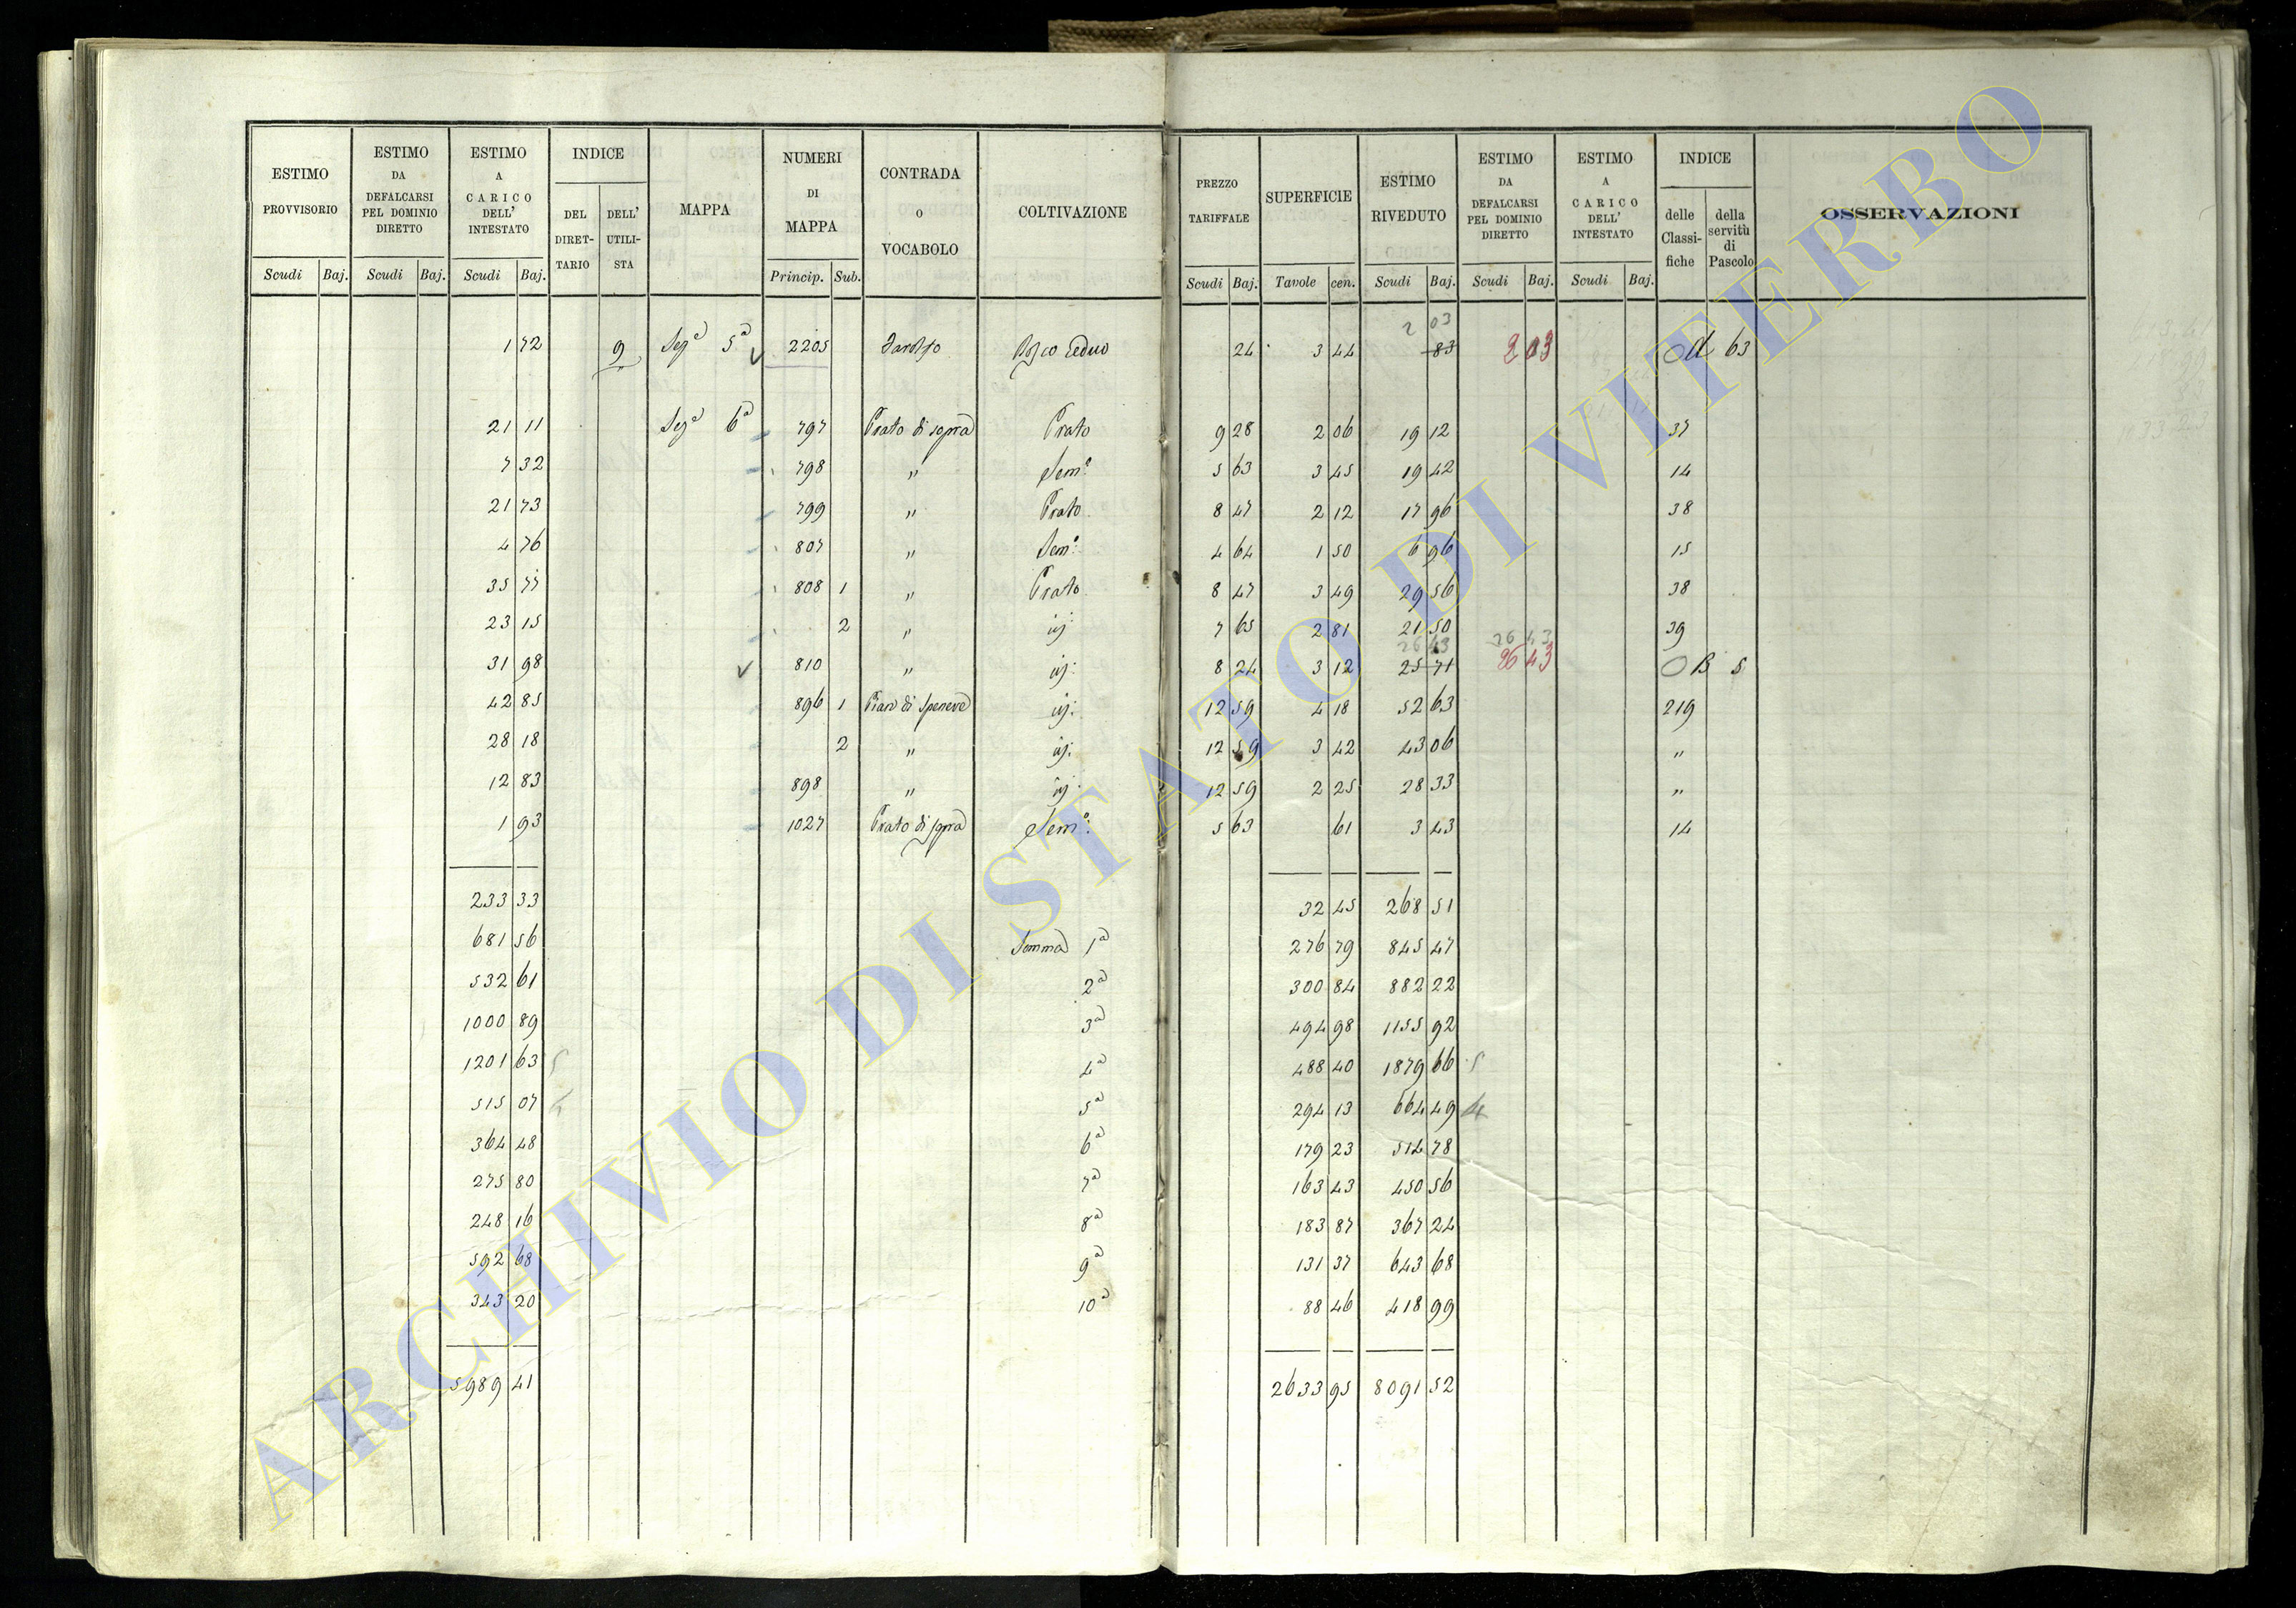 ESTIMO PROVVISORIO | ESTIMO DA DEFALCARSI PEL DOMINIO DIRETTO | ESTIMO A CARICO DELL' INTESTATO | INDICE DEL DIRET-TARIO | DELL' UTILI-STA | MAPPA | NUMERI DI MAPPA | CONTRADA O VOCABOLO | COLTIVAZIONE | PREZZO TARIFFALE | SUPERFICIE | ESTIMO RIVEDUTO | ESTIMO DA DEFALCARSI PEL DOMINIO DIRETTO | ESTIMO A CARICO DELL' INTESTATO | INDICE delle Classi-fiche | della servitù di Pascolo | OSSERVAZIONI
Scudi Baj. | Scudi Baj. | Scudi Baj. | Princip. Sub. | Scudi Baj. | Tavole cen. | Scudi Baj. | Scudi Baj. | Scudi Baj.
2 03
1 72 9 Sezᵉ 5ᵃ 2205 Bosco Ceduo 24 3 44 83 2 03 63
21 11 Sezᵉ 6ᵃ 797 Prato di sopra Prato 9 28 2 06 19 12 37
7 32 798 " Semᵒ 5 63 3 45 19 42 14
21 73 799 " Prato 8 47 2 12 17 96 38
4 76 807 " Semᵒ 4 64 1 50 6 96 15
35 77 808 1 " Prato 8 47 3 49 29 56 38
23 15 2 " id: 7 65 2 81 21 50 39
26 43 26 43
31 98 810 " id: 8 24 3 12 25 71 26 43 O B 5
42 85 896 1 Piano di id: 12 59 4 18 52 63 219
28 18 2 " id: 12 59 3 42 43 06 "
12 83 898 " id: 12 59 2 25 28 33 "
1 93 1027 Prato di sopra Semᵒ: 5 63 61 3 43 14
233 33 32 45 268 51
681 56 Somma 1ᵃ 276 79 845 47
532 61 2ᵃ 300 84 882 22
1000 89 3ᵃ 494 98 1155 92
1201 63 5 4ᵃ 488 40 1879 66 5
515 07 4 5ᵃ 294 13 664 49 4
364 48 6ᵃ 179 23 514 78
275 80 7ᵃ 163 43 450 56
248 16 8ᵃ 183 87 367 24
592 68 9ᵃ 131 37 643 68
343 20 10ᵃ 88 46 418 99
5989 41 2633 95 8091 52
ARCHIVIO DI STATO DI VITERBO